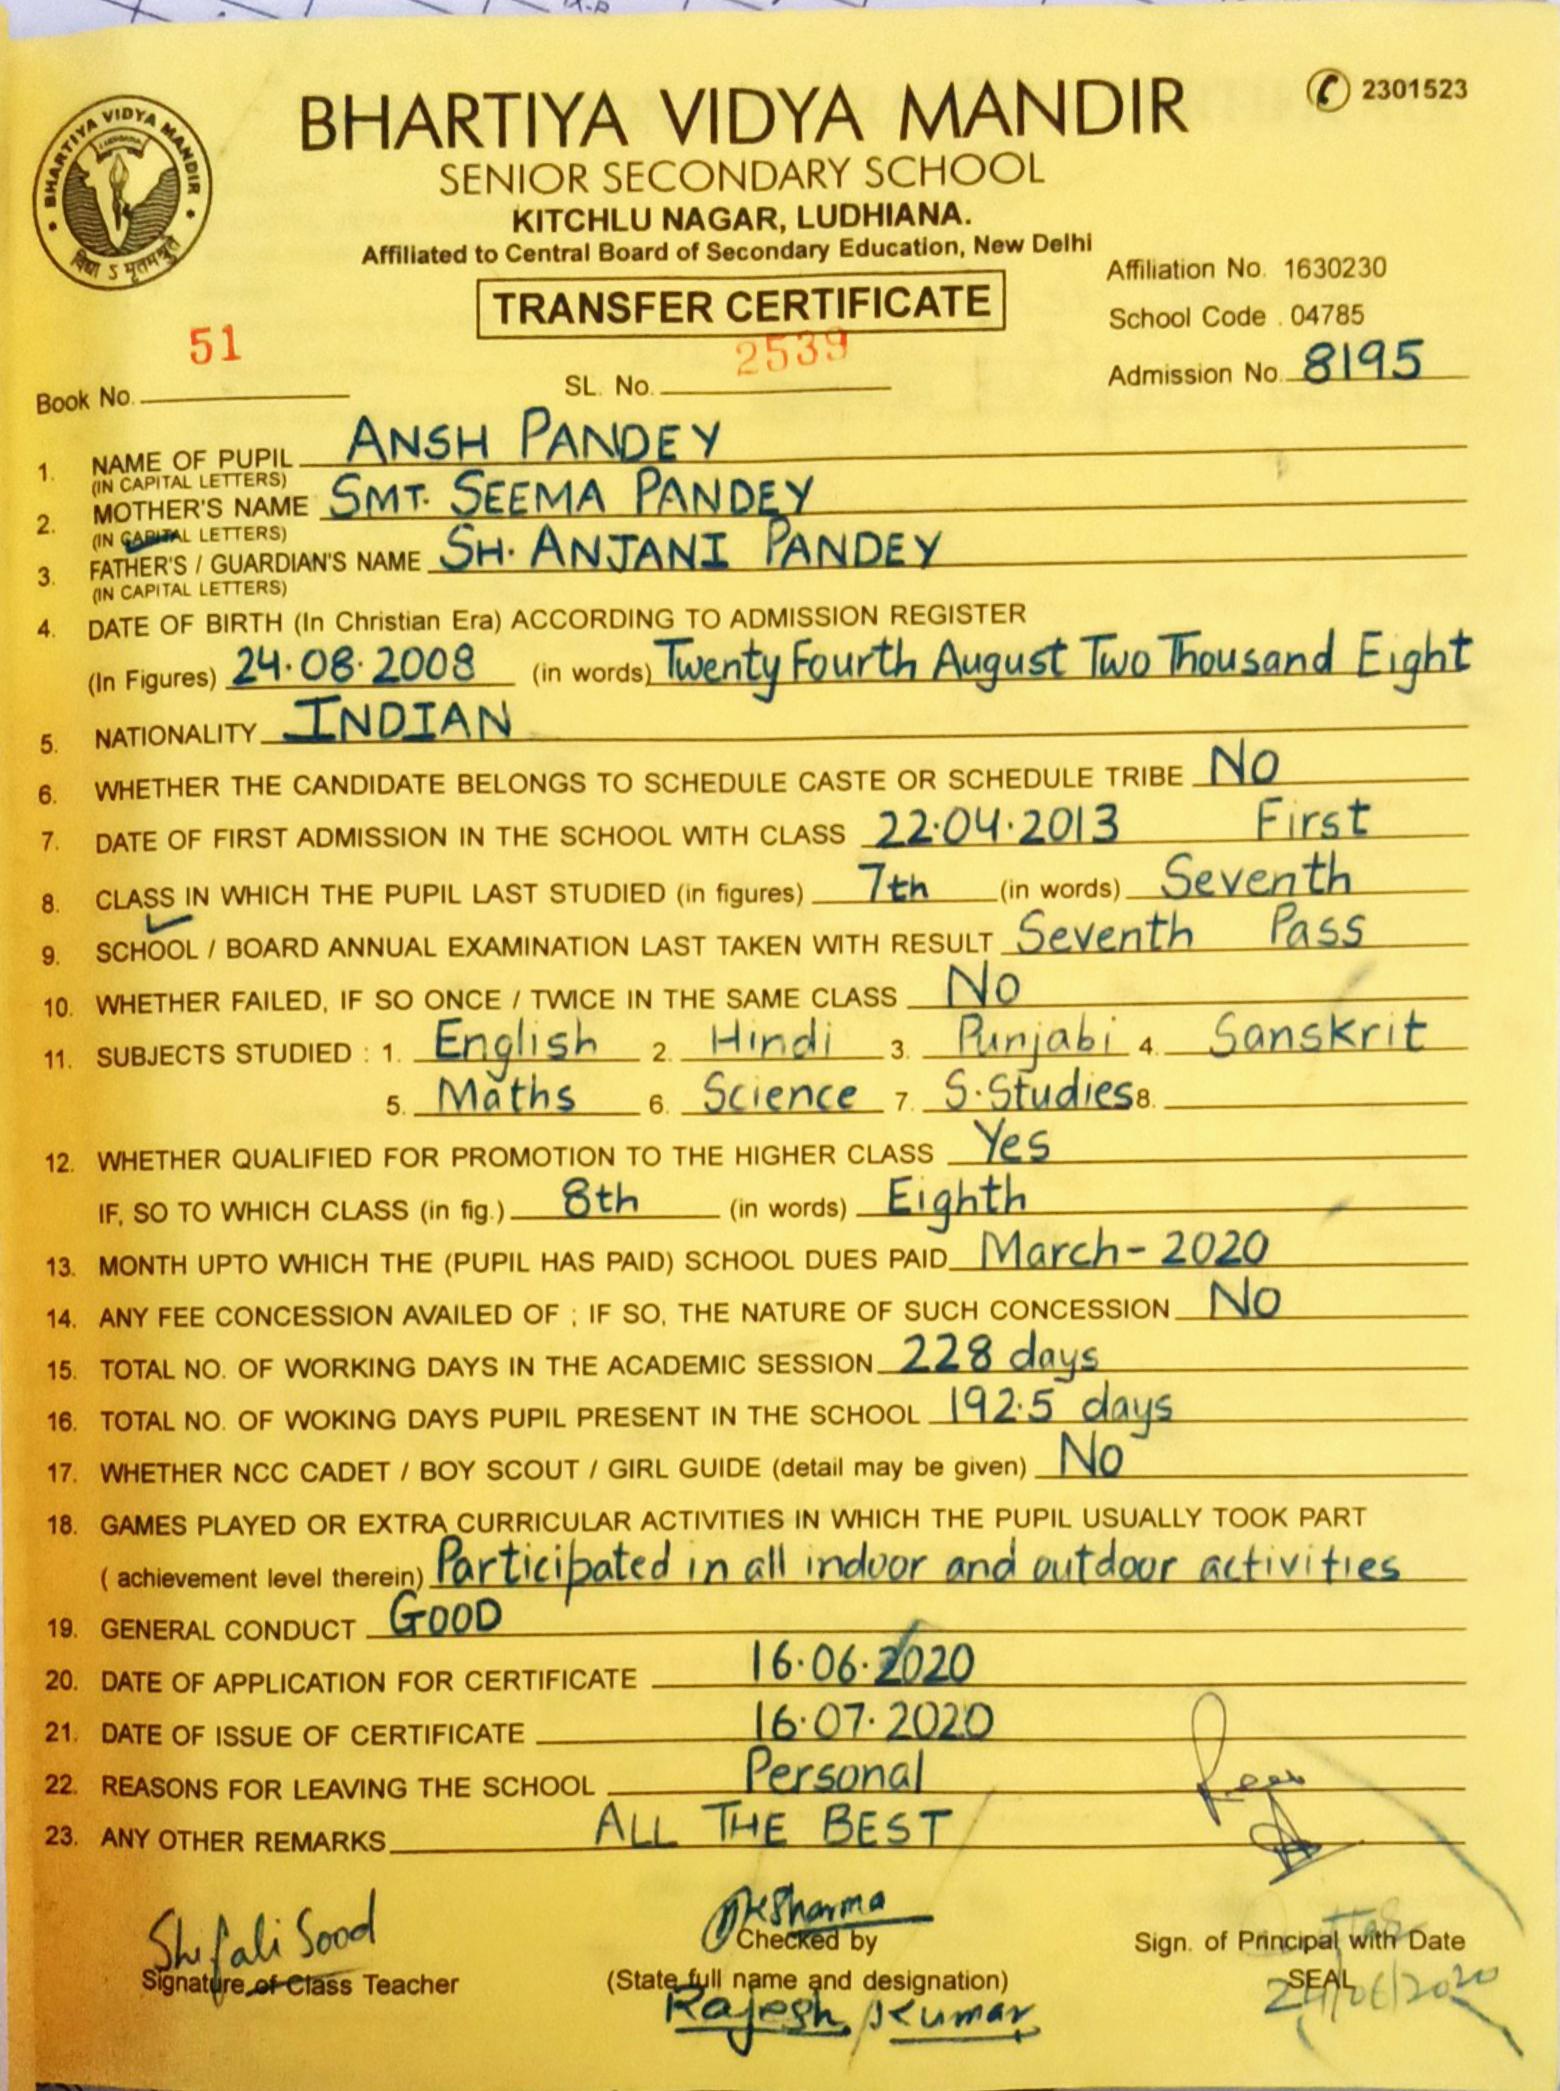 BHARTIYA VIDYA MANDIR
2301523
BHARTIYA VIDYA MANDIR
SENIOR SECONDARY SCHOOL
KITCHLU NAGAR, LUDHIANA.
Affiliated to Central Board of Secondary Education, New Delhi
Affiliation No. 1630230
TRANSFER CERTIFICATE
School Code . 04785
Book No. 51 SL. No. 2539 Admission No. 8195
1. NAME OF PUPIL ANSH PANDEY
(IN CAPITAL LETTERS)
2. MOTHER'S NAME SMT. SEEMA PANDEY
(IN CAPITAL LETTERS)
3. FATHER'S / GUARDIAN'S NAME SH. ANJANI PANDEY
(IN CAPITAL LETTERS)
4. DATE OF BIRTH (In Christian Era) ACCORDING TO ADMISSION REGISTER
(In Figures) 24.08.2008 (in words) Twenty Fourth August Two Thousand Eight
5. NATIONALITY INDIAN
6. WHETHER THE CANDIDATE BELONGS TO SCHEDULE CASTE OR SCHEDULE TRIBE No
7. DATE OF FIRST ADMISSION IN THE SCHOOL WITH CLASS 22.04.2013 First
8. CLASS IN WHICH THE PUPIL LAST STUDIED (in figures) 7th (in words) Seventh
9. SCHOOL / BOARD ANNUAL EXAMINATION LAST TAKEN WITH RESULT Seventh Pass
10. WHETHER FAILED, IF SO ONCE / TWICE IN THE SAME CLASS No
11. SUBJECTS STUDIED : 1. English 2. Hindi 3. Punjabi 4. Sanskrit
5. Maths 6. Science 7. S.Studies 8.
12. WHETHER QUALIFIED FOR PROMOTION TO THE HIGHER CLASS Yes
IF, SO TO WHICH CLASS (in fig.) 8th (in words) Eighth
13. MONTH UPTO WHICH THE (PUPIL HAS PAID) SCHOOL DUES PAID March-2020
14. ANY FEE CONCESSION AVAILED OF ; IF SO, THE NATURE OF SUCH CONCESSION No
15. TOTAL NO. OF WORKING DAYS IN THE ACADEMIC SESSION 228 days
16. TOTAL NO. OF WOKING DAYS PUPIL PRESENT IN THE SCHOOL 192.5 days
17. WHETHER NCC CADET / BOY SCOUT / GIRL GUIDE (detail may be given) No
18. GAMES PLAYED OR EXTRA CURRICULAR ACTIVITIES IN WHICH THE PUPIL USUALLY TOOK PART
( achievement level therein) Participated in all indoor and outdoor activities
19. GENERAL CONDUCT GOOD
20. DATE OF APPLICATION FOR CERTIFICATE 16.06.2020
21. DATE OF ISSUE OF CERTIFICATE 16.07.2020
22. REASONS FOR LEAVING THE SCHOOL Personal
23. ANY OTHER REMARKS ALL THE BEST
Shifali Sood Sharma
Checked by Sign. of Principal with Date
Signature of Class Teacher (State full name and designation) SEAL
Rajesh Kumar